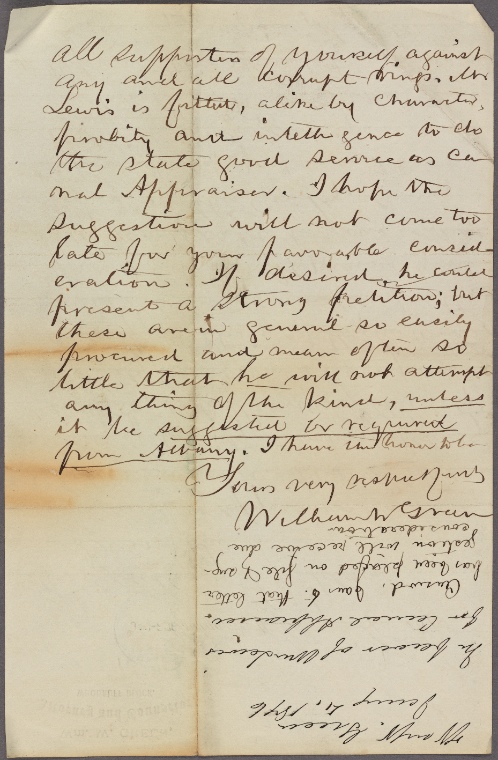 all supporters of yourself against
any and all corrupt rings. Mr
Lewis is fitted, alike by character,
probity and intelligence to do
the state good service as ca
nal Appraiser. I hope the
suggestion will not come too
late for your favorable consid-
eration. If desired, he could
present a strong petition; but
these are in general so easily
procured and mean often so
little that he will not attempt
any thing of the kind, unless
it be suggested or required
from Albany. I have the honor to be
Yours very respectfully
William W Green
Wm W. Green
Jany 4, 1876
In favor of
for Canal Appraiser.
Answd. Jan 6. that letter
has been placed on file & sug-
gestion will receive due
consideration